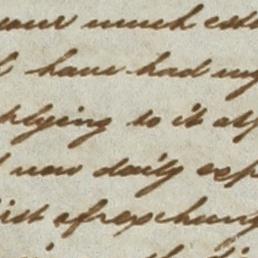 your much est
I have had my
plying to it at
I now daily exp
ist of exchang